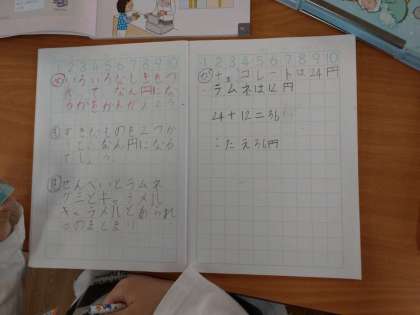 1 2 3 4 5 6 7 8 9 10
いろいろなしきをつ
て なん円にな
るかをかんがえよう
すきなものを2つか
なん円になる
でしょう
せんべいとラムネ
グミとキャラメル
キャラメルとあられ
のまとまり
1 2 3 4 5 6 7 8 9 10
チョコレートは24円
ラムネは12円
24+12=36
こたえ36円